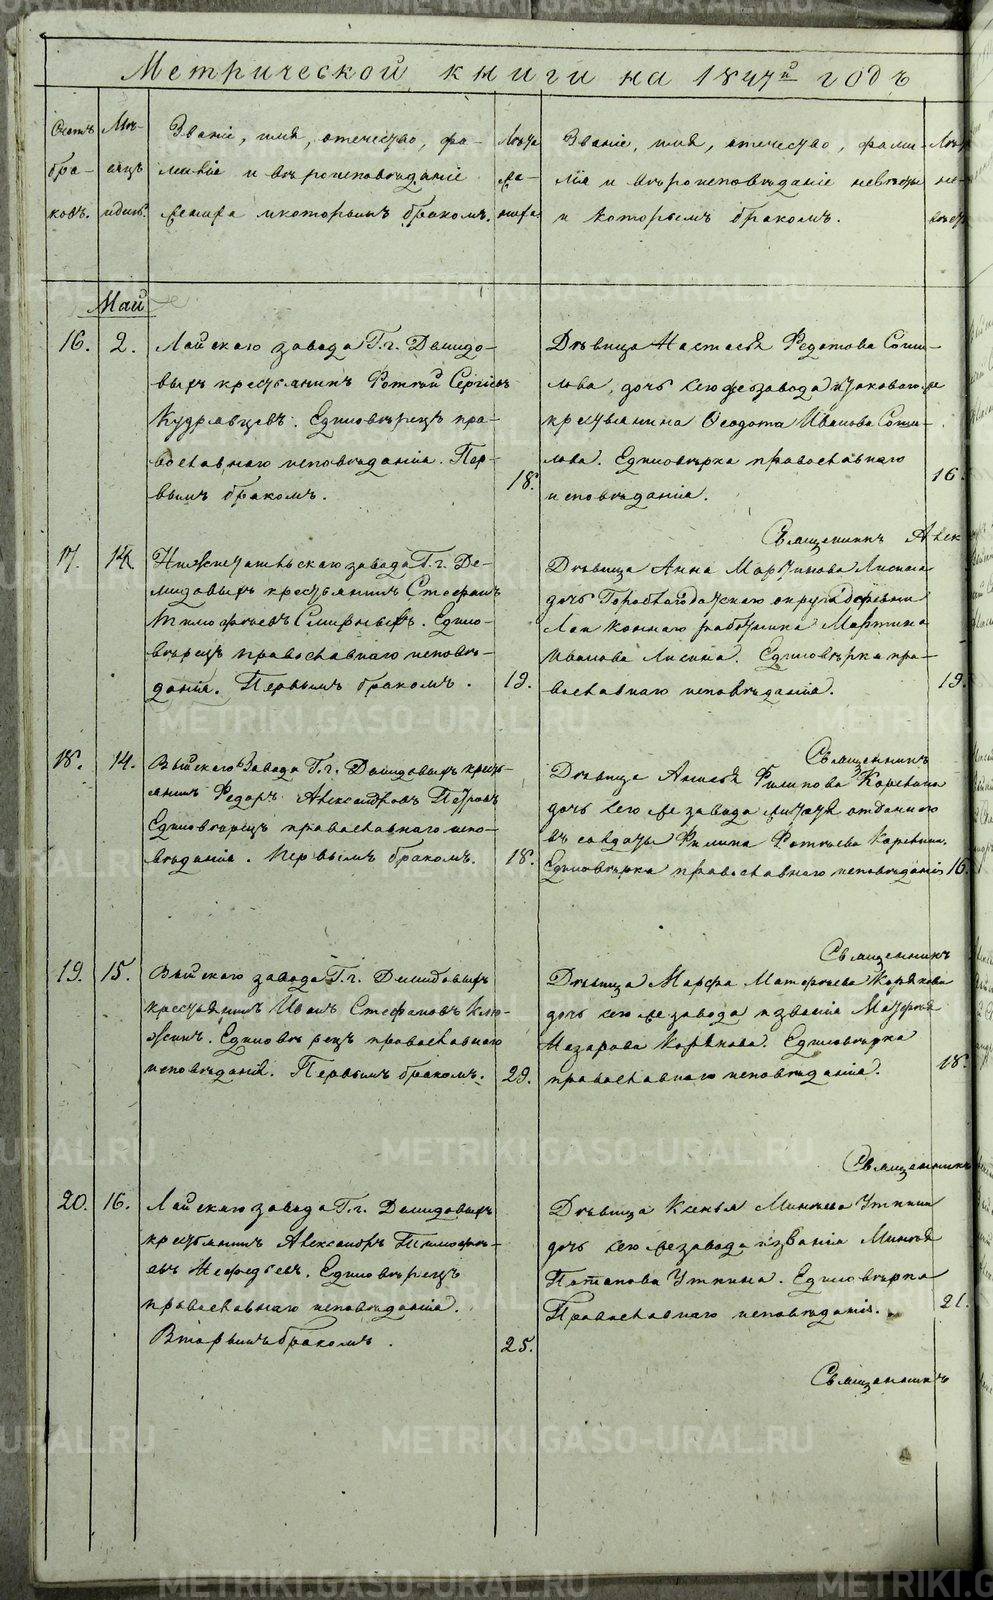 Метрической книги на 1847й годъ
Счетъ
бра-
ковъ.
Мѣ-
сяцъ
и день.
Званіе, имя, отечество, фа-
милія и вѣроисповѣданіе
жениха и которымъ бракомъ.
Лѣта
же-
ниха
Званіе, имя, отечество, фами-
лія и вѣроисповѣданіе невѣсты
и которымъ бракомъ.
Лѣта
не-
вѣсты
Май
16.
2.
Лайскаго завода Г.г. Демидо-
выхъ крестьянинъ Фотій Сергіевъ
Кудрявцевъ. Единовѣрецъ пра-
вославнаго исповѣданія. Пер-
вымъ бракомъ.
18.
Дѣвица Настасья Федотова Сопи-
лова, дочь сего же завода
крестьянина Ѳеодота Иванова Сопи-
лова. Единовѣрка православнаго
исповѣданія.
16.
Священникъ Алек
17.
14.
Нижнетагильскаго завода Г.г. Де-
мидовыхъ крестьянинъ Стефанъ
Тимофѣевъ Смирныхъ. Едино-
вѣрецъ православнаго исповѣ-
данія. Первымъ бракомъ.
19.
Дѣвица Анна Мартинова Лисина
дочь Гороблагодатскаго округа деревни
Лаи коннаго работника Мартина
Иванова Лисина. Единовѣрка пра-
вославнаго исповѣданія.
19.
Священникъ
18.
14.
Выйскаго завода Г.г. Демидовыхъ кресть-
янинъ Федоръ Александровъ Петровъ
Единовѣрецъ православнаго испо-
вѣданія. Первымъ бракомъ.
18.
Дѣвица Анисья Филипова Корекина
дочь сего же завода отданного
въ солдаты Филипа Фотѣева Корекина.
Единовѣрка православнаго исповѣданія
16.
Священникъ
19.
15.
Выйскаго завода Г.г. Демидовыхъ
крестьянинъ Иванъ Стефановъ Клю-
жинъ. Единовѣрецъ православнаго
исповѣданія. Первымъ бракомъ.
29.
Дѣвица Марфа Матфѣева Корякова
дочь сего же завода и званія Матфѣя
Назарова Корякова. Единовѣрка
православнаго исповѣданія.
18.
Священникъ
20.
16.
Лайскаго завода Г.г. Демидовыхъ
крестьянинъ Александръ Тимофѣ-
евъ Мефодьевъ. Единовѣрецъ
православнаго исповѣданія.
Вторымъ бракомъ.
25.
Дѣвица Ксенья Минѣева Уткина
дочь сего же завода и званія Минѣя
Потапова Уткина. Единовѣрка
Православнаго исповѣданія.
21.
Священникъ
METRIKI.GASO-URAL.RU